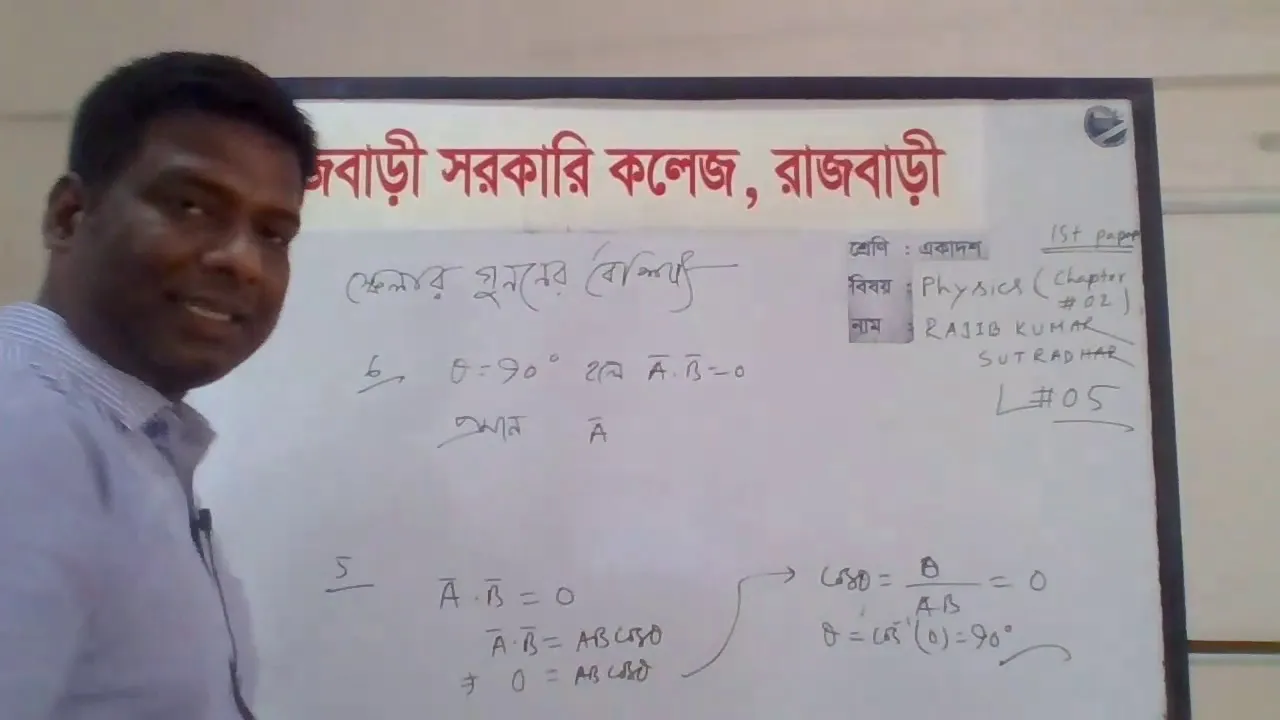 জবাড়ী সরকারি কলেজ, রাজবাড়ী
1st paper
শ্রেণি : একাদশ
বিষয় : Physics (Chapter # 02)
নাম : RAJIB KUMAR
SUTRADHAR
L # 05
স্কেলার গুননের বৈশিষ্ট্য
6 θ = 90° হলে A̅ . B̅ = 0
প্রমান A̅
5
A̅ . B̅ = 0
A̅ . B̅ = AB cosθ
⇒ 0 = AB cosθ
→ cosθ = 0 / AB = 0
θ = cos⁻¹ (0) = 90°